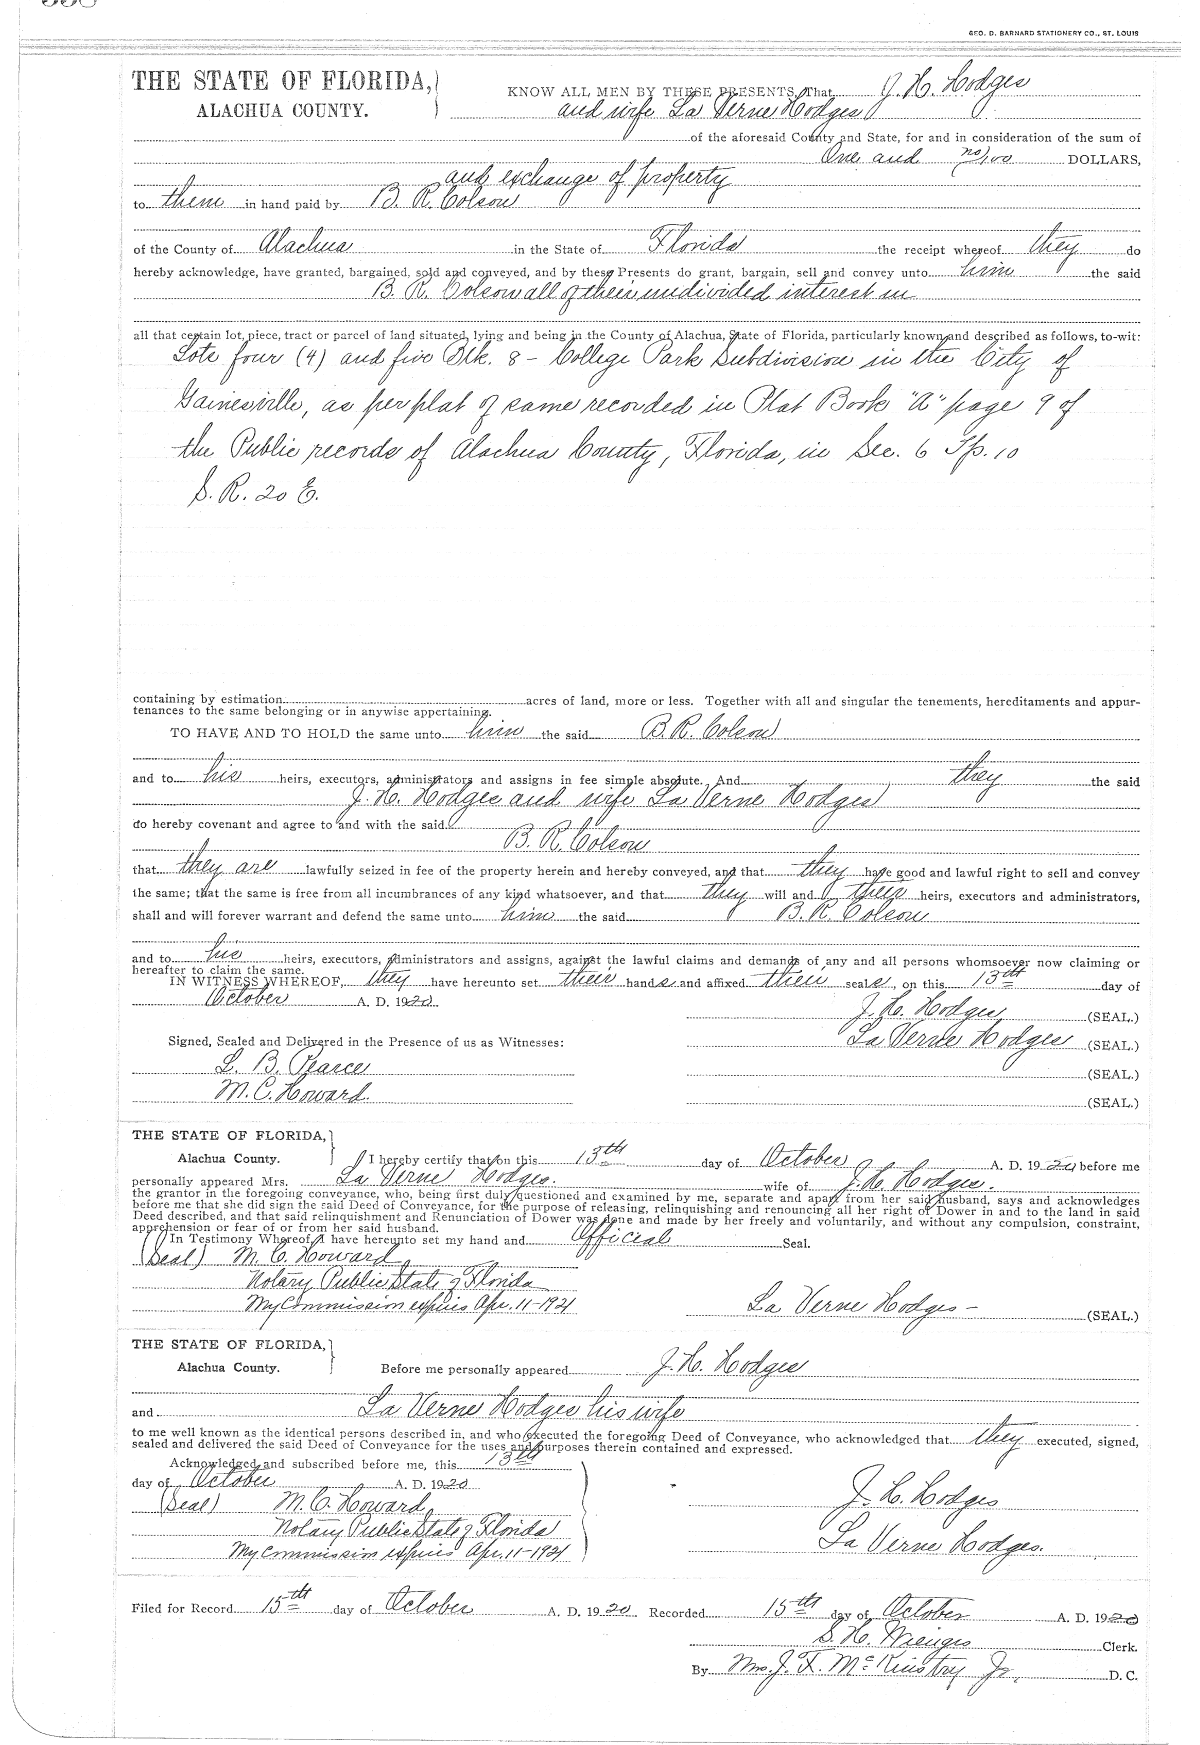 GEO. D. BARNARD STATIONERY CO., ST. LOUIS
THE STATE OF FLORIDA,
ALACHUA COUNTY.
KNOW ALL MEN BY THESE PRESENTS, That J. H. Hodges
and wife La Verne Hodges
of the aforesaid County and State, for and in consideration of the sum of
One and no/100 DOLLARS,
and exchange of property
to them in hand paid by B. R. Colson
of the County of Alachua in the State of Florida the receipt whereof they do
hereby acknowledge, have granted, bargained, sold and conveyed, and by these Presents do grant, bargain, sell and convey unto him the said
B. R. Colson all of their undivided interest in
all that certain lot, piece, tract or parcel of land situated, lying and being in the County of Alachua, State of Florida, particularly known and described as follows, to-wit:
Lots four (4) and five Blk. 8 - College Park Subdivision in the City of
Gainesville, as per plat of same recorded in Plat Book "A" page 9 of
the Public records of Alachua County, Florida, in Sec. 6 Tp. 10
S. R. 20 E.
containing by estimation acres of land, more or less. Together with all and singular the tenements, hereditaments and appur-
tenances to the same belonging or in anywise appertaining.
TO HAVE AND TO HOLD the same unto him the said B. R. Colson
and to his heirs, executors, administrators and assigns in fee simple absolute. And they the said
J. H. Hodges and wife La Verne Hodges
do hereby covenant and agree to and with the said
B. R. Colson
that they are lawfully seized in fee of the property herein and hereby conveyed, and that they have good and lawful right to sell and convey
the same; that the same is free from all incumbrances of any kind whatsoever, and that they will and their heirs, executors and administrators,
shall and will forever warrant and defend the same unto him the said B. R. Colson
and to his heirs, executors, administrators and assigns, against the lawful claims and demands of any and all persons whomsoever now claiming or
hereafter to claim the same.
IN WITNESS WHEREOF, they have hereunto set their hands and affixed their seals, on this 13th day of
October A. D. 1920
J. H. Hodges (SEAL.)
Signed, Sealed and Delivered in the Presence of us as Witnesses: La Verne Hodges (SEAL.)
L. B. Pearce (SEAL.)
M. C. Howard. (SEAL.)
THE STATE OF FLORIDA,
Alachua County. I hereby certify that on this 13th day of October A. D. 1920 before me
personally appeared Mrs. La Verne Hodges. wife of J. H. Hodges.
the grantor in the foregoing conveyance, who, being first duly questioned and examined by me, separate and apart from her said husband, says and acknowledges
before me that she did sign the said Deed of Conveyance, for the purpose of releasing, relinquishing and renouncing all her right of Dower in and to the land in said
Deed described, and that said relinquishment and Renunciation of Dower was done and made by her freely and voluntarily, and without any compulsion, constraint,
apprehension or fear of or from her said husband.
In Testimony Whereof, I have hereunto set my hand and Official Seal.
(Seal) M. C. Howard
Notary Public State of Florida
My Commission expires Apr. 11-1921 La Verne Hodges - (SEAL.)
THE STATE OF FLORIDA,
Alachua County. Before me personally appeared J. H. Hodges
and La Verne Hodges his wife
to me well known as the identical persons described in, and who executed the foregoing Deed of Conveyance, who acknowledged that they executed, signed,
sealed and delivered the said Deed of Conveyance for the uses and purposes therein contained and expressed.
Acknowledged and subscribed before me, this 13th
day of October A. D. 1920
(Seal) M. C. Howard J. H. Hodges
Notary Public State of Florida
My Commission expires Apr. 11-1921 La Verne Hodges.
Filed for Record 15th day of October A. D. 1920 Recorded 15th day of October A. D. 1920
S. H. Wienges Clerk.
By Mrs. J. F. McKinstry Jr. D. C.